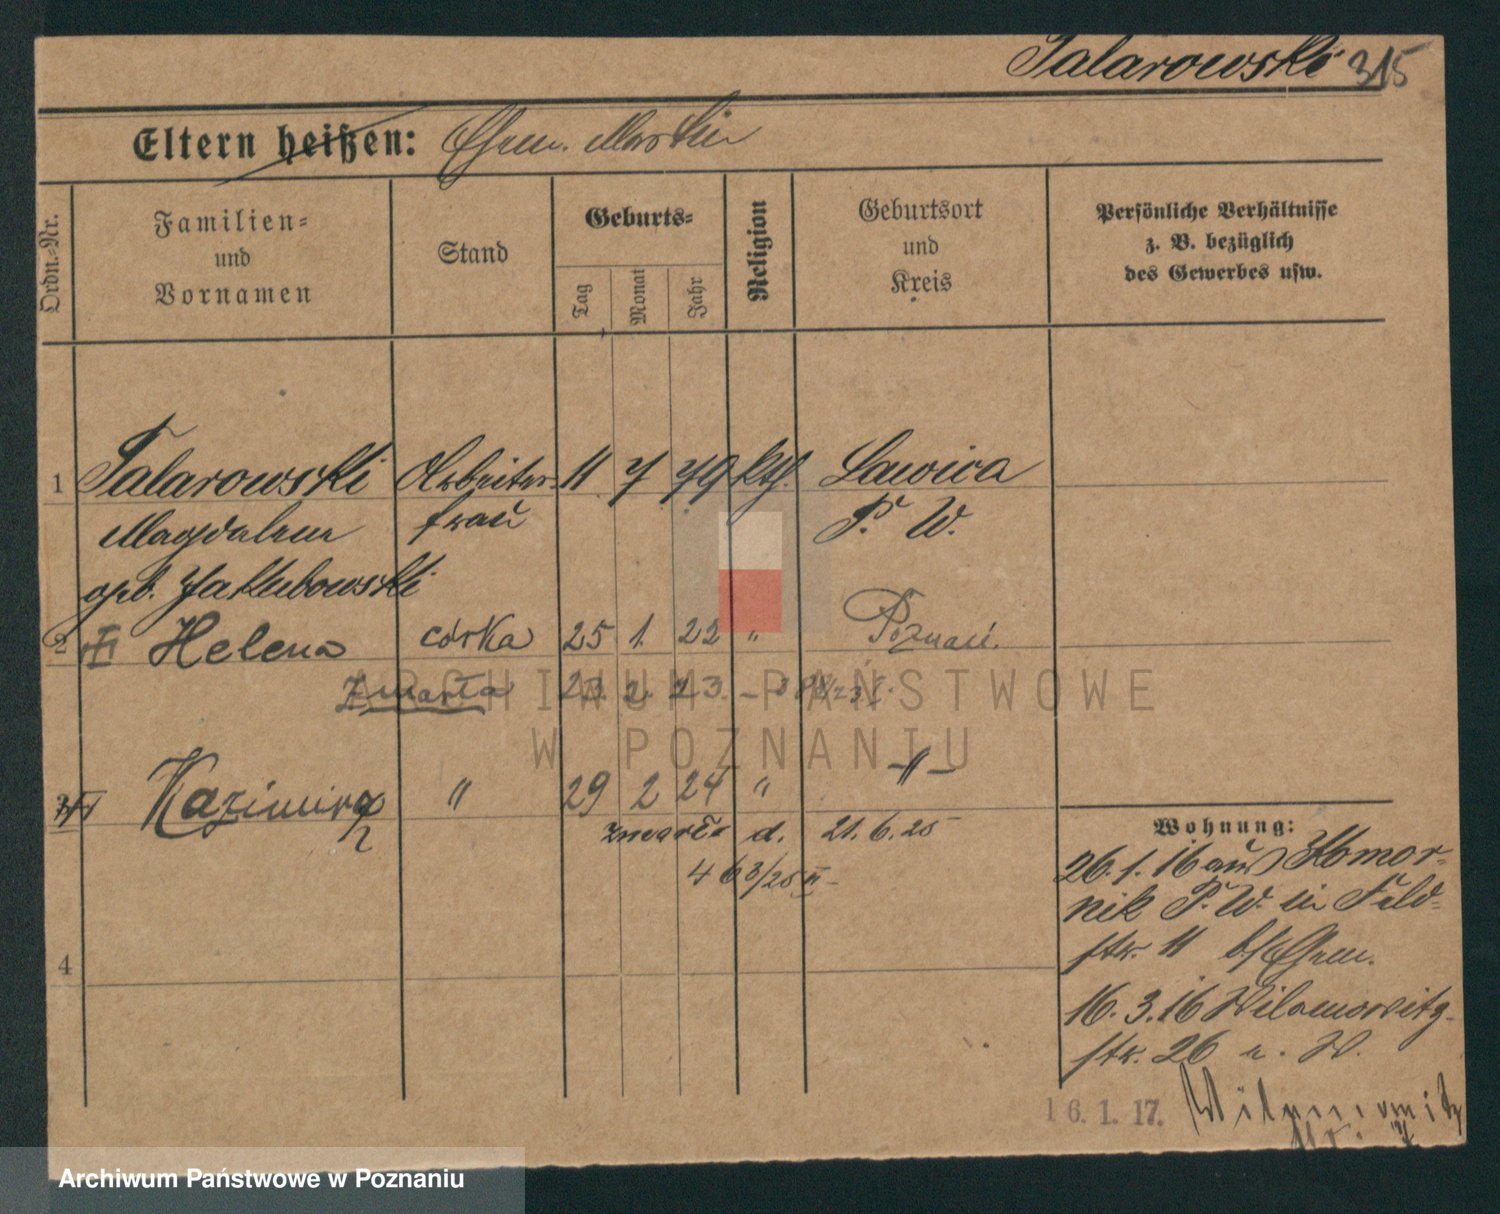 Talarowski 315
Eltern heißen: Ehem. Martin
Ordn.-Nr.
Familien-
und
Vornamen
Stand
Geburts-
Tag
Monat
Jahr
Religion
Geburtsort
und
Kreis
Persönliche Verhältnisse
z. B. bezüglich
des Gewerbes usw.
1 Talarowski Arbeiter- 11 7 79 kth. Lawica
Magdalena frau P. W.
geb. Jakubowski
2 Helena córka 25 1. 22 " Poznań.
Zmarła 23. 2. 23.
Kazimira " 29 2 24 " -"-
zmarła d. 21. 6. 25
463/25 II
4
Wohnung:
26.1.16 aus Komor-
nik P. W. in Feld-
str. 11 b/Ehem.
16.3.16 Wilamowitz-
str. 26 u. W.
16.1.17. Wilamowitz
str.
ARCHIWUM PAŃSTWOWE
W POZNANIU
Archiwum Państwowe w Poznaniu